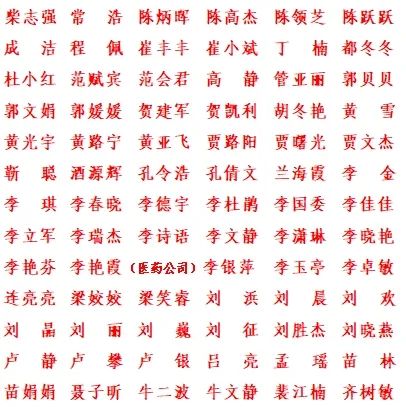 柴志强 常浩 陈炳晖 陈高杰 陈领芝 陈跃跃
成洁 程佩 崔丰丰 崔小斌 丁楠 都冬冬
杜小红 范赋宾 范会君 高静 管亚丽 郭贝贝
郭文娟 郭媛媛 贺建军 贺凯利 胡冬艳 黄雪
黄光宇 黄路宁 黄亚飞 贾路阳 贾曙光 贾文杰
靳聪 酒源辉 孔令浩 孔倩文 兰海霞 李金
李琪 李春晓 李德宇 李杜鹃 李国委 李佳佳
李立军 李瑞杰 李诗语 李文静 李潇琳 李晓艳
李艳芬 李艳霞(医药公司) 李银萍 李玉亭 李卓敏
连亮亮 梁姣姣 梁笑睿 刘浜 刘晨 刘欢
刘晶 刘丽 刘巍 刘征 刘胜杰 刘晓燕
卢静 卢攀 卢银 吕亮 孟瑶 苗林
苗娟娟 聂子昕 牛二波 牛文静 裴江楠 齐树敏